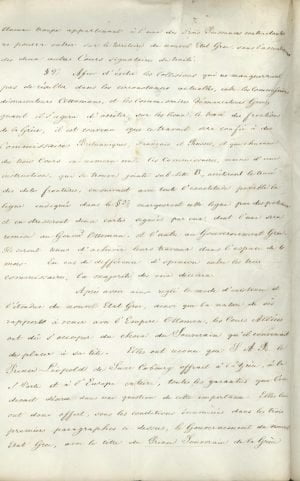 Aucune troupe appartenant à l'une des trois Puissances contractantes
ne pourra entrer sur le territoire du nouvel Etat Grec, sans l'assentiment
des deux autres Cours signataires du traité.
§ 9. Afin d'éviter les collisions qui ne manqueraient
pas de résulter, dans les circonstances actuelles, entre les Commissaires
démarcateurs Ottomans, et les Commissaires démarcateurs Grecs,
quand il s'agira d'arrêter, sur les lieux, le tracé des frontières
de la Grèce, il est convenu que ce travail sera confié à des
Commissaires Britanniques, Français et Russes, et que chacune
des trois Cours en nommera un. Ces Commissaires, munis d'une
instruction, qui se trouve jointe sub litt. B, arrêteront le tracé
des dites frontières, en suivant avec toute l'exactitude possible la
ligne indiquée dans le § 2; marqueront cette ligne par des poteaux
et en dresseront deux cartes signées par eux, dont l'une sera
remise au Gouvt Ottoman, et l'autre au Gouvernement Grec.
Ils seront tenus d'achever leurs travaux dans l'espace de 6
mois. En cas de différence d'opinion entre les trois
commissaires, la majorité des voix décidera.
Après avoir ainsi réglé le mode d'existence et
l'étendue du nouvel Etat Grec, ainsi que la nature de ses
rapports à venir avec l'Empire Ottoman, les Cours Alliées
ont dû s'occuper du choix du Souverain qu'il convenait
de placer à sa tête. Elles ont reconnu que S. A. R. le
Prince Léopold de Saxe Cobourg offrait à la Grèce, à la
Porte et à l'Europe entière, toutes les garanties que l'on
devait désirer dans une question de cette importance. Elles lui
ont donc offert, sous les conditions énoncées dans les trois
premiers paragraphes ci dessus, le Gouvernement du nouvel
Etat Grec, avec le titre de Prince Souverain de la Grèce